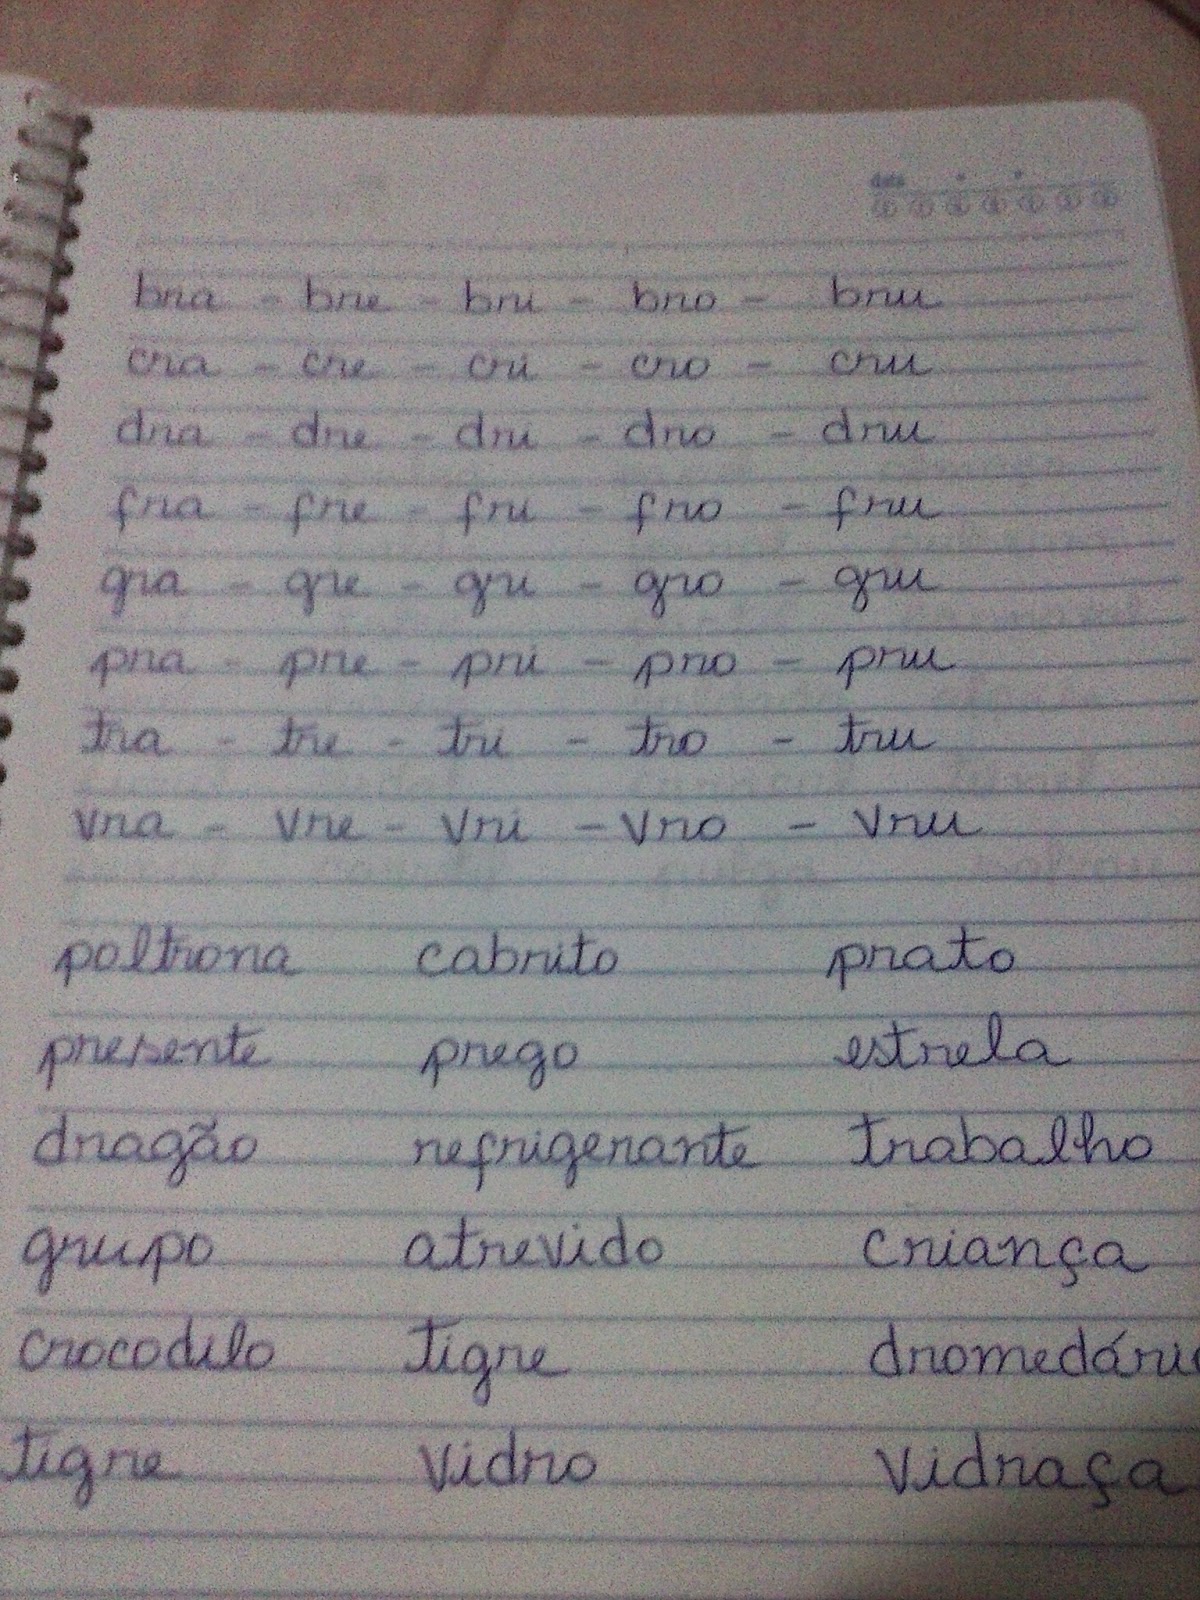 data
bra - bre - bri - bro - bru
cra - cre - cri - cro - cru
dra - dre - dri - dro - dru
fra - fre - fri - fro - fru
gra - gre - gri - gro - gru
pra - pre - pri - pro - pru
tra - tre - tri - tro - tru
vra - vre - vri - vro - vru
poltrona cabrito prato
presente prego estrela
dragão refrigerante trabalho
grupo atrevido criança
crocodilo tigre dromedário
tigre vidro vidraça